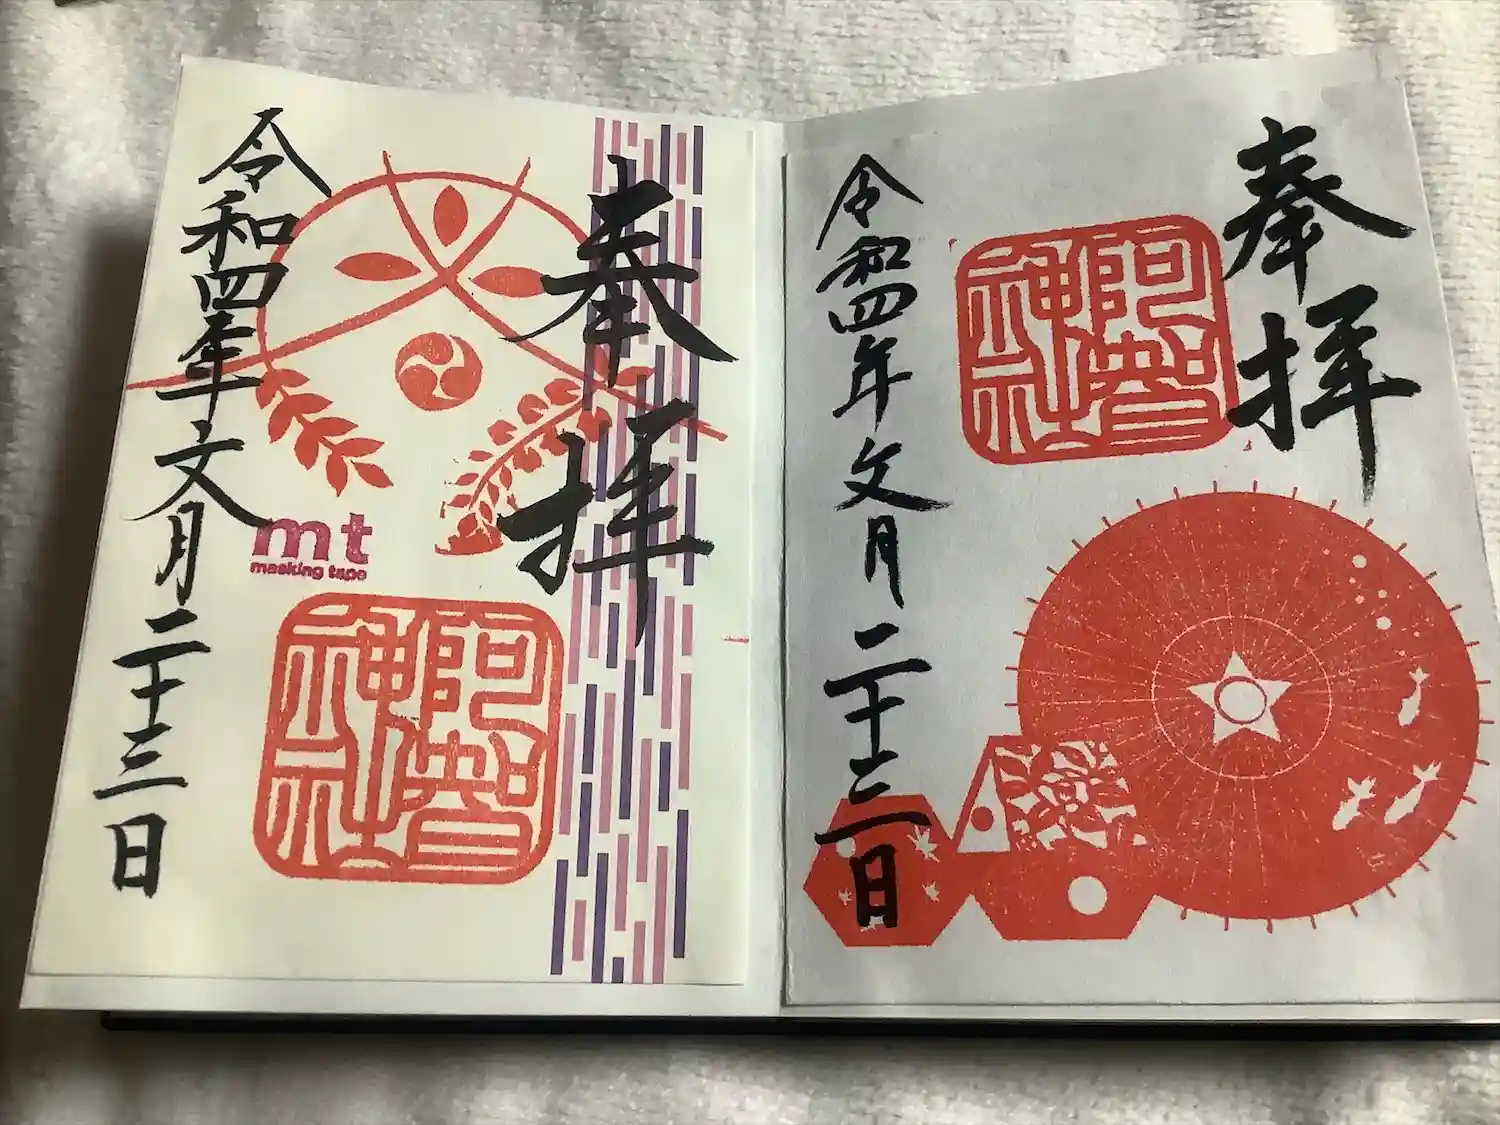 奉拝
阿智
神社
令和四年文月二十三日
奉拝
阿智
神社
mt
masking tape
令和四年文月二十三日